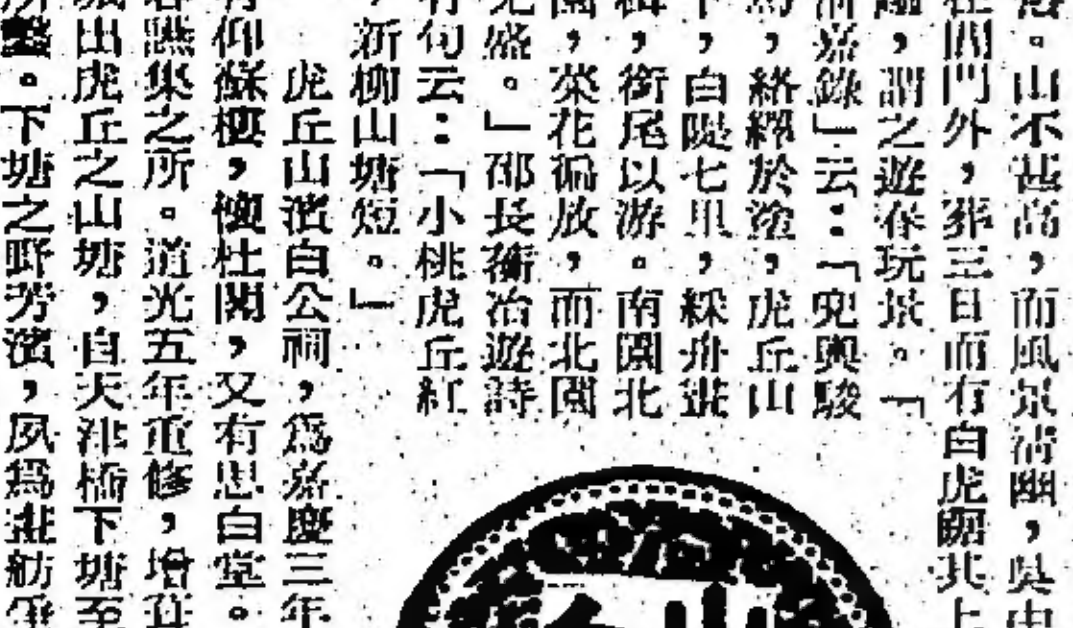 。山不甚高,而風景清幽,吳中
在閶門外,葬三日而有白虎踞其上
,謂之遊春玩景。「
清嘉錄」云:「兜輿駿
馬,絡繹於塗,虎丘山
下,白隄七里,綵舟畫
楫,銜尾以游。南園北
園,菜花徧放,而北園
尤盛。」邵長蘅冶遊詩
有句云:「小桃虎丘紅
,新柳山塘短。」
虎丘山濱白公祠,爲嘉慶三年
有仰蘇樓,懷杜閣,又有思白堂。
讌集之所。道光五年重修,增
出虎丘之山塘,自天津橋下塘至
所鑿。下塘之野芳濱,夙爲畫舫